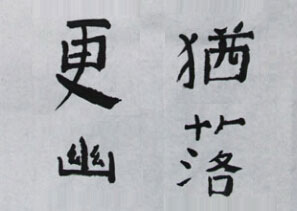 猶落
更幽